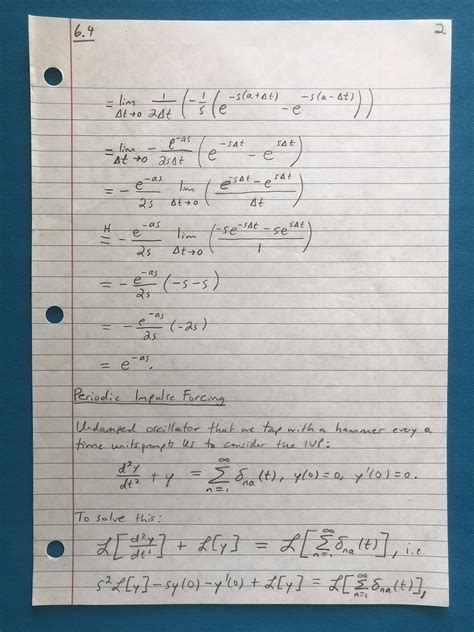 6.4 2
= lim Δt→0 1/(2Δt) (-1/s (e^{-s(a+Δt)} - e^{-s(a-Δt)}))
= lim Δt→0 - e^{-as}/(2sΔt) (e^{-sΔt} - e^{sΔt})
= - e^{-as}/(2s) lim Δt→0 ((e^{-sΔt} - e^{sΔt})/Δt)
H= - e^{-as}/(2s) lim Δt→0 ((-se^{-sΔt} - se^{sΔt})/1)
= - e^{-as}/(2s) (-s-s)
= - e^{-as}/(2s) (-2s)
= e^{-as}.
Periodic Impulse Forcing
Undamped oscillator that we tap with a hammer every a
time units prompts us to consider the IVP:
d²y/dt² + y = ∑_{n=1}^{∞} δ_{na}(t), y(0)=0, y'(0)=0.
To solve this:
ℒ[d²y/dt²] + ℒ[y] = ℒ[∑_{n=1}^{∞} δ_{na}(t)], i.e
s²ℒ[y] - sy(0) - y'(0) + ℒ[y] = ℒ[∑_{n=1}^{∞} δ_{na}(t)],